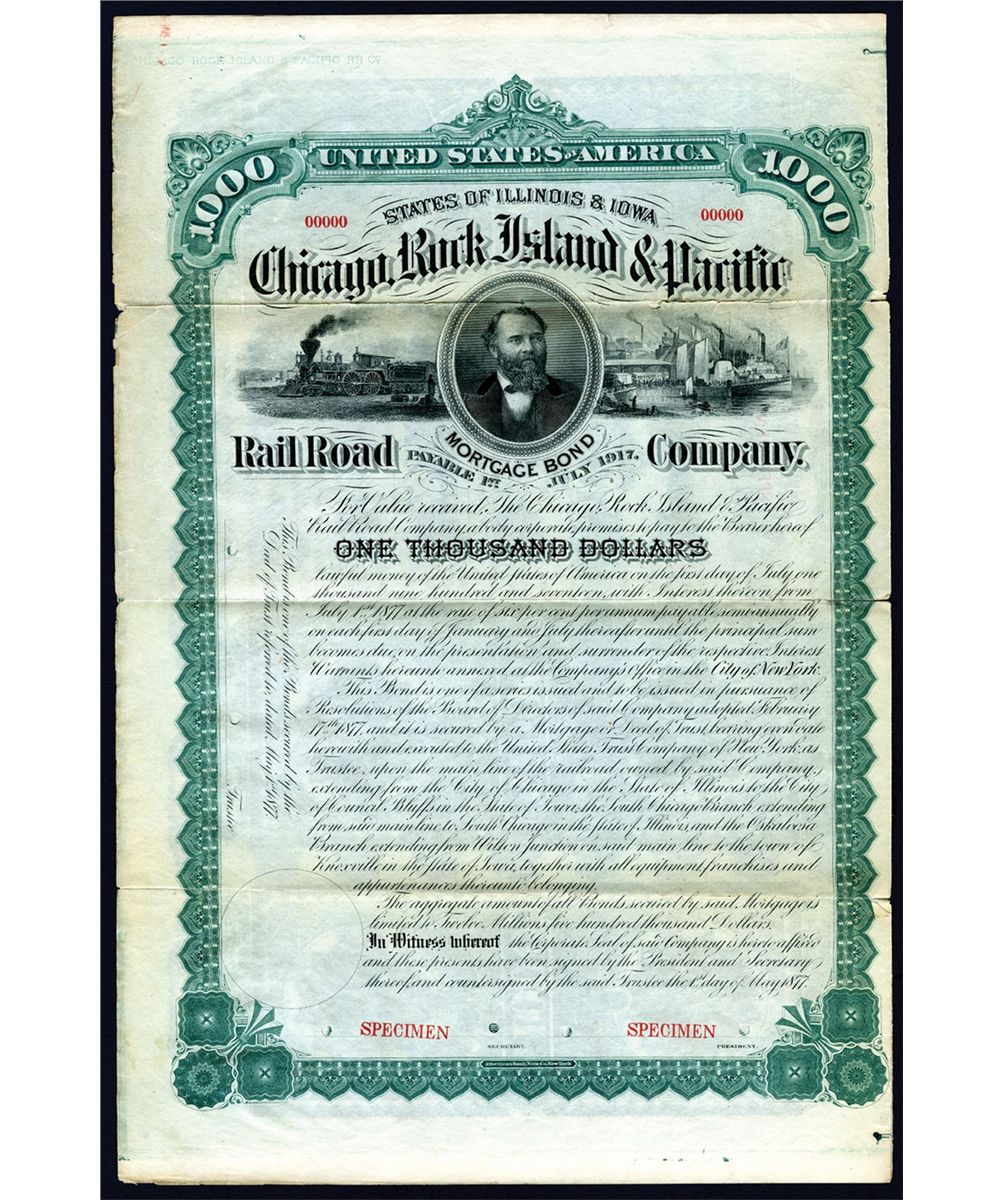 CHICAGO ROCK ISLAND & PACIFIC RR Co
UNITED STATES OF AMERICA
1000
1000
STATES OF ILLINOIS & IOWA
00000
00000
Chicago, Rock Island & Pacific
Rail Road
Company.
MORTGAGE BOND
PAYABLE 1ST JULY 1917.
For Value received, The Chicago, Rock Island & Pacific
Rail Road Company, a body corporate, promises to pay to the Bearer hereof
ONE THOUSAND DOLLARS
lawful money of the United States of America on the first day of July one
thousand nine hundred and seventeen, with Interest thereon from
July 1st 1877 at the rate of six per cent per annum payable semi annually
on each first day of January and July thereafter until the principal sum
becomes due, on the presentation and surrender of the respective Interest
Warrants hereunto annexed at the Company's Office in the City of New York.
This Bond is one of a series issued and to be issued in pursuance of
Resolutions of the Board of Directors of said Company adopted February
17th 1877, and it is secured by a Mortgage or Deed of Trust bearing even date
herewith and executed to the United States Trust Company of New York, as
Trustee, upon the main line of the railroad, owned by said Company,
extending from the City of Chicago in the State of Illinois to the City
of Council Bluffs in the State of Iowa, the South Chicago Branch extending
from said main line to South Chicago in the State of Illinois, and the Oskaloosa
Branch extending from Wilton Junction on said main line to the town of
Knoxville in the State of Iowa, together with all equipment, franchises and
appurtenances thereunto belonging.
The aggregate amount of all Bonds secured by said Mortgage is
limited to Twelve Millions five hundred thousand Dollars.
In Witness whereof the Corporate Seal of said Company is hereto affixed
and these presents have been signed by the President and Secretary
thereof, and countersigned by the said Trustee the 1st day of May 1877.
This Bond is one of the Bonds secured by the
Deed of Trust referred to dated May 1st 1877
Trustee
SPECIMEN
SPECIMEN
SECRETARY.
PRESIDENT.
American Bank Note Co. New York